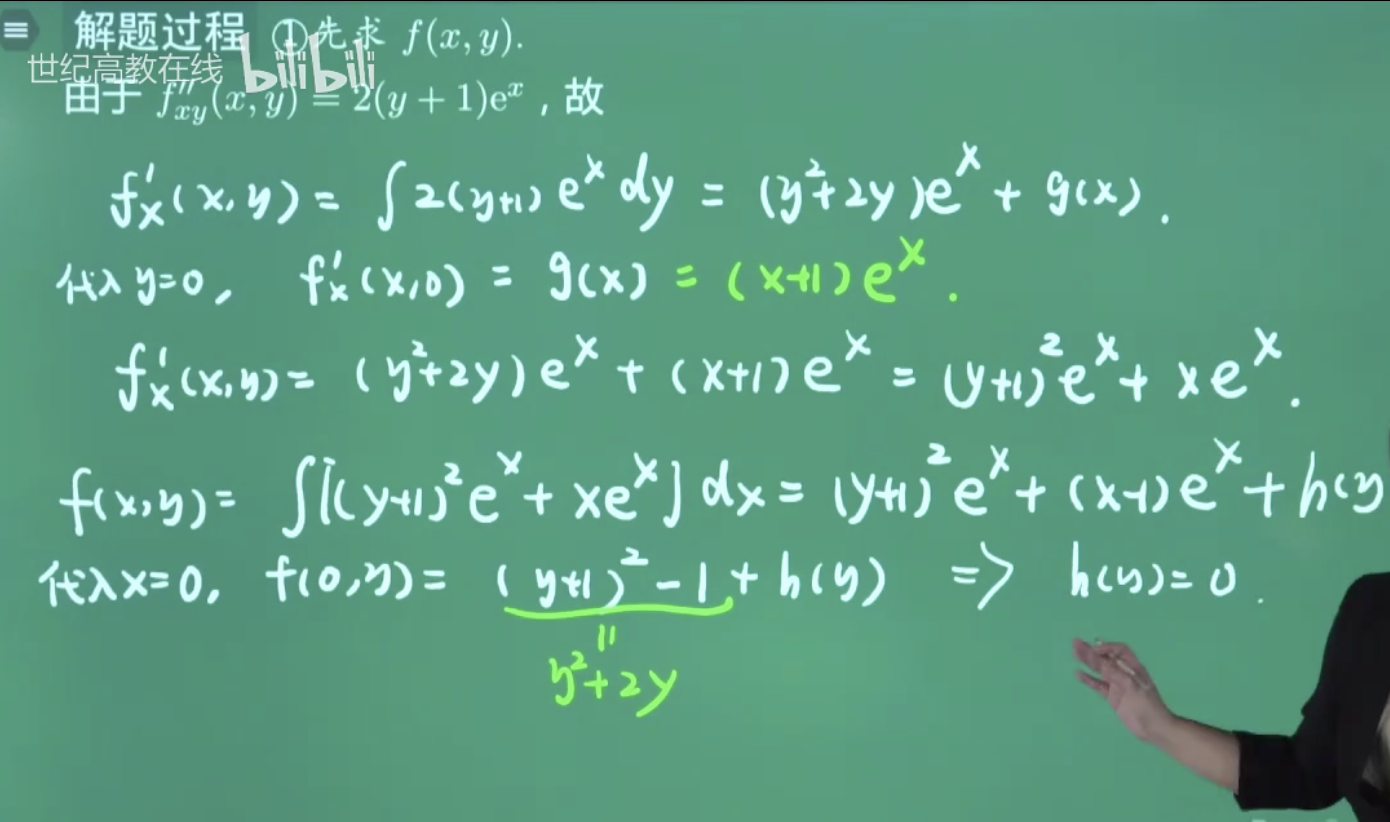 解题过程 ①先求 f(x, y).
世纪高教在线 bilibili
由于 f''xy(x, y) = 2(y + 1)eˣ , 故
f'x(x,y) = ∫2(y+1)eˣdy = (y²+2y)eˣ + g(x).
代入y=0, f'x(x,0) = g(x) = (x+1)eˣ.
f'x(x,y) = (y²+2y)eˣ + (x+1)eˣ = (y+1)²eˣ + xeˣ.
f(x,y) = ∫[(y+1)²eˣ + xeˣ]dx = (y+1)²eˣ + (x-1)eˣ + h(y
代入x=0, f(0,y) = (y+1)²-1 + h(y) => h(y)=0.
||
y²+2y